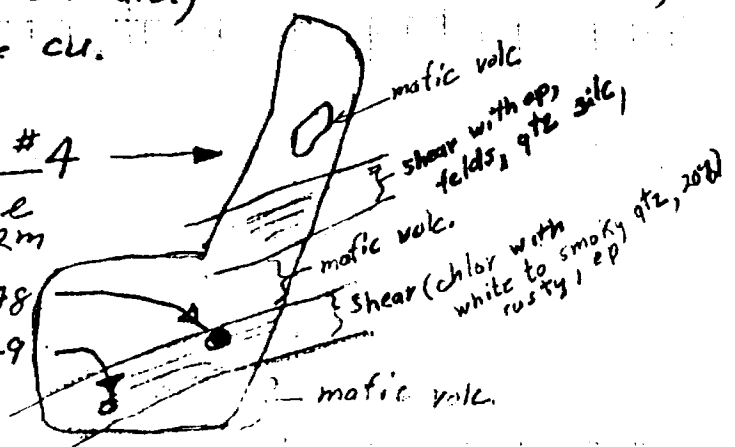 cu.
mafic volc
#4
shear with ep,
felds, qtz silc,
2m
mafic volc.
78
shear (chlor with
white to smoky qtz, 20%)
rusty, ep
-9
mafic volc.